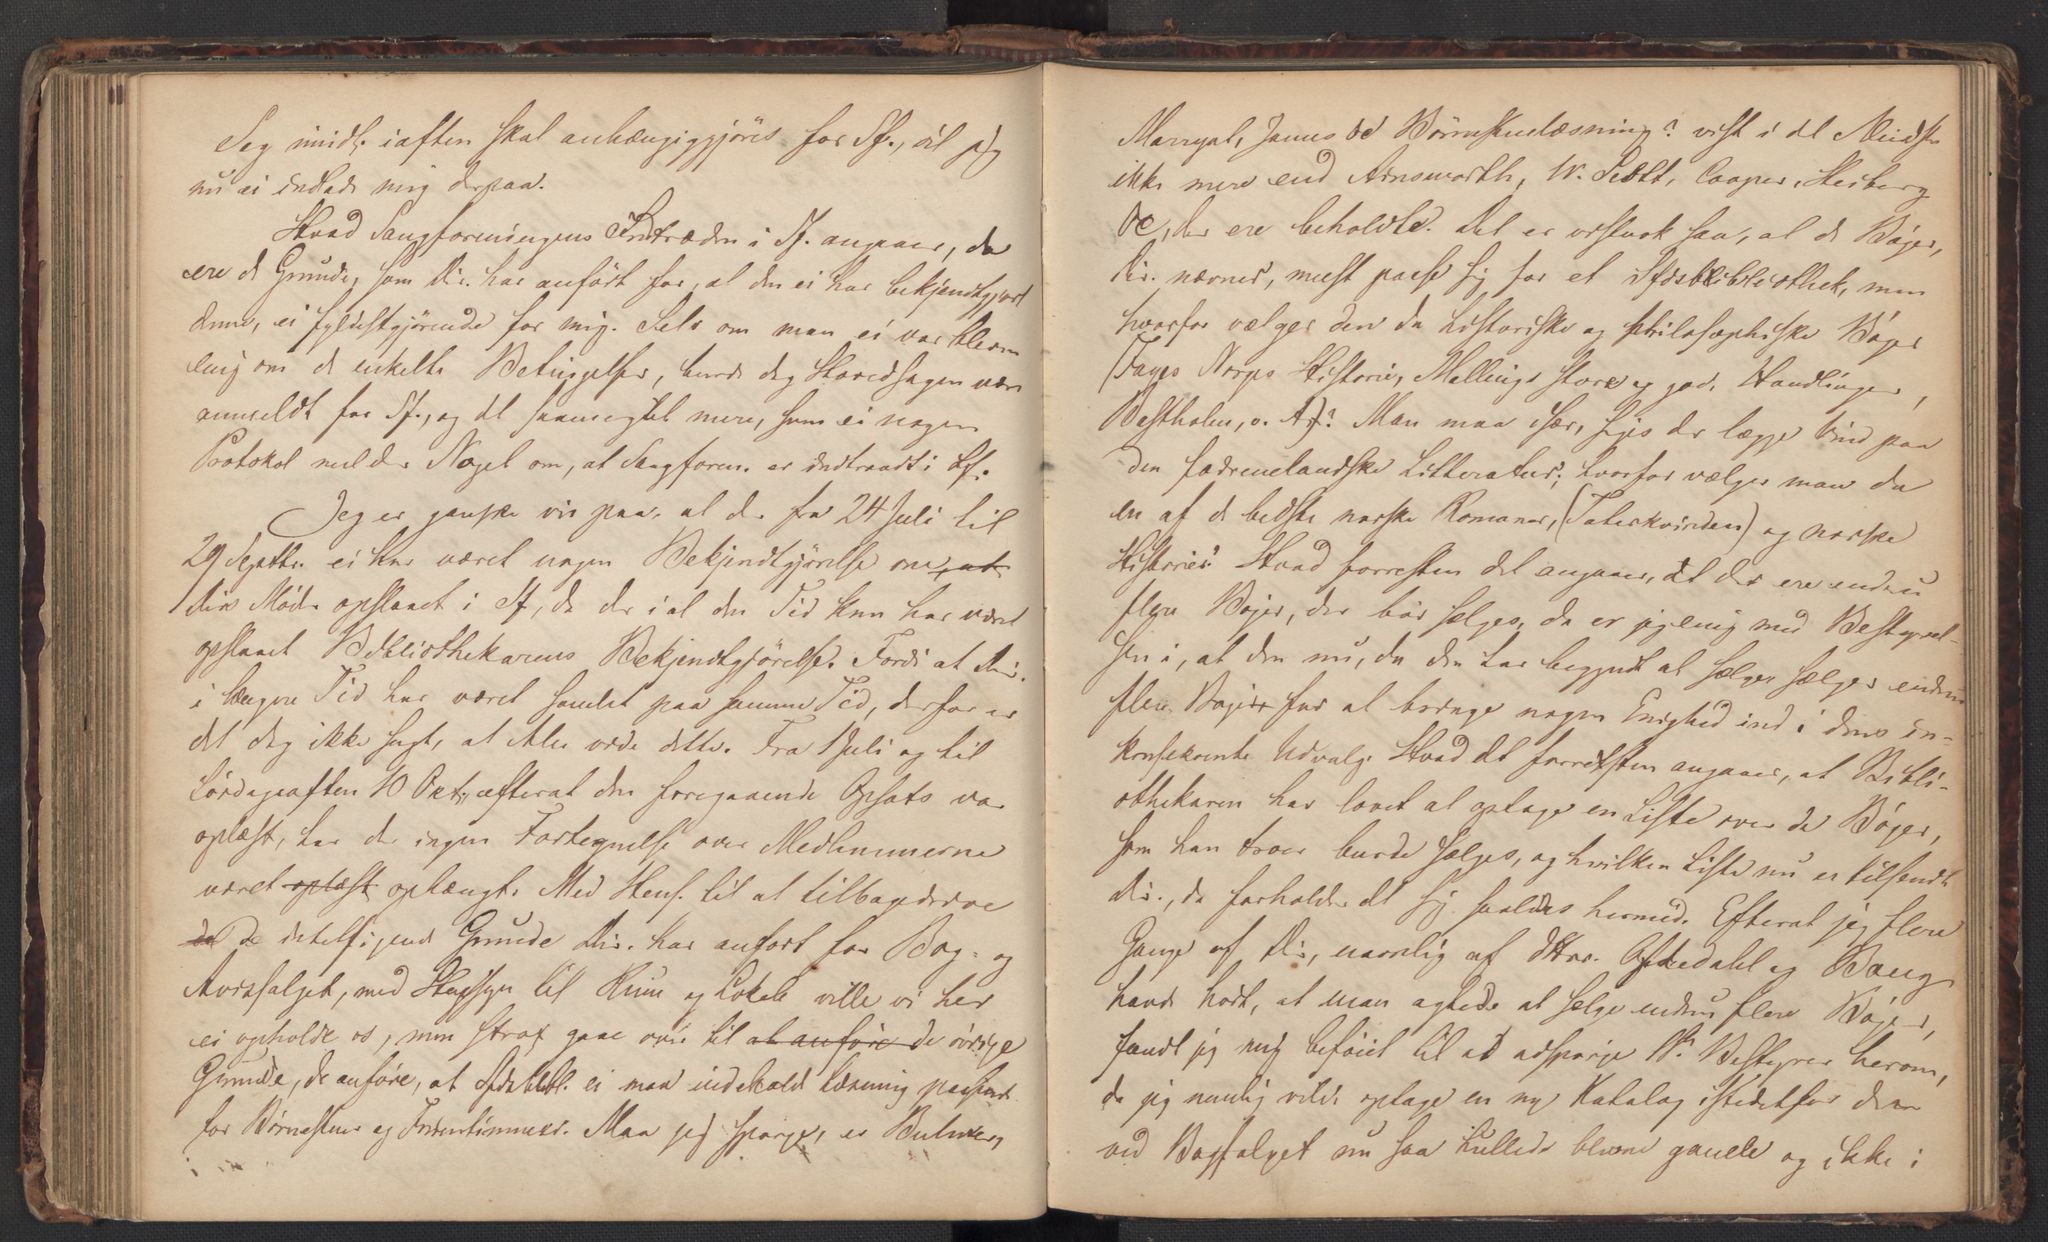 Sag imidl. iaften skal anhængiggjöres for Sf., vil jeg
nu ei indlade mig derpaa.
Hvad Sangforeningens Indtræden i Sf. angaaer, da
ere de Grunde, som Dir. har anført for, at den ei har bekjendtgjort
denne, ei fyldestgjörende for mig. Selv om man ei var bleven
enig om de enkelte Betingelser, burde dog Hovedsagen være
anmeldt for Sf., og det saameget mere, som ei nogen
Protokol melder Noget om, at Sangforen. er indtraadt i Sf.
Jeg er ganske vis paa, at der fra 24 Juli til
29 Septbr. ei har været nogen Bekjendtgjörelse om at
dens Möde opslaaet i Sf, da der i al den Tid kun har været
opslaaet Bibliothekarens Bekjendtgjørelse. Fordi at Dir.
i længere Tid har været samlet paa samme Tid, derfor er
det dog ikke sagt, at Alle vide dette. Fra 1 Juli og til
Lördagaften 10 Okt., efterat den foregaaende Opsats var
oplæst, har der ingen Fortegnelse over Medlemmerne
været oplæst ophængt. Med Hens. til at tilbagedrive
de de intetsigende Grunde Dir. har anført for Bog- og
Avissalget, med Hensyn til Rum og Lokale ville vi her
ei opholde os, men strax gaae over til at anføre de övrige
Grunde, de anføre, at Sfdsbibl. ei maa indeholde Læsning passende
for Börnestuer og Fruentimmer. Maa jeg spörge, er Bulwer,
Marryat, James &c Börnestuelæsning? vist i det Mindste
ikke mere end Ainsworth, W. Scott, Cooper, Heiberg
&c, der ere beholdte. Det er vistnok saa, at de Bøger,
Dir. nævner, mest passe sig for et Sfdsbibliothek, men
hvorfor vælger den da historiske og philosophiske Bøger
(Fayes Norges Historie, Mallings store og gode Handlinger,
Bastholm, o. A.)? Man maa især, siges der lægge Vind paa
den fædrenelandske Litteratur; hvorfor vælger man da
en af de bedste norske Romaner, (Taterkvinden) og norske
Historier? Hvad forresten det angaaer, at der ere endnu
flere Bøger, der bör sælges, da er jeg enig med Bestyrel-
sen i, at den nu, da den har begyndt at sælge, sælger endnu
flere Bøger for at bringe nogen Enighed ind i dens in-
konsekvente Udvalg. Hvad det forresten angaaer, at Bibli-
othekaren har lovet at optage en Liste over de Bøger,
som han troer burde sælges, og hvilken Liste nu er tilsendt
Dir., da forholder det sig saaledes hermed. Efterat jeg flere
Gange af Dir, navnlig af DHrr. Oftedahl og Baug
havde hørt, at man agtede at sælge endnu flere Bøger,
fandt jeg mig beföiet til at adspørge Bestyrer herom,
da jeg nemlig vilde optage en ny Katalog istedetfor den
ved Bogsalget nu saa hullede blevne gamle og ikke i